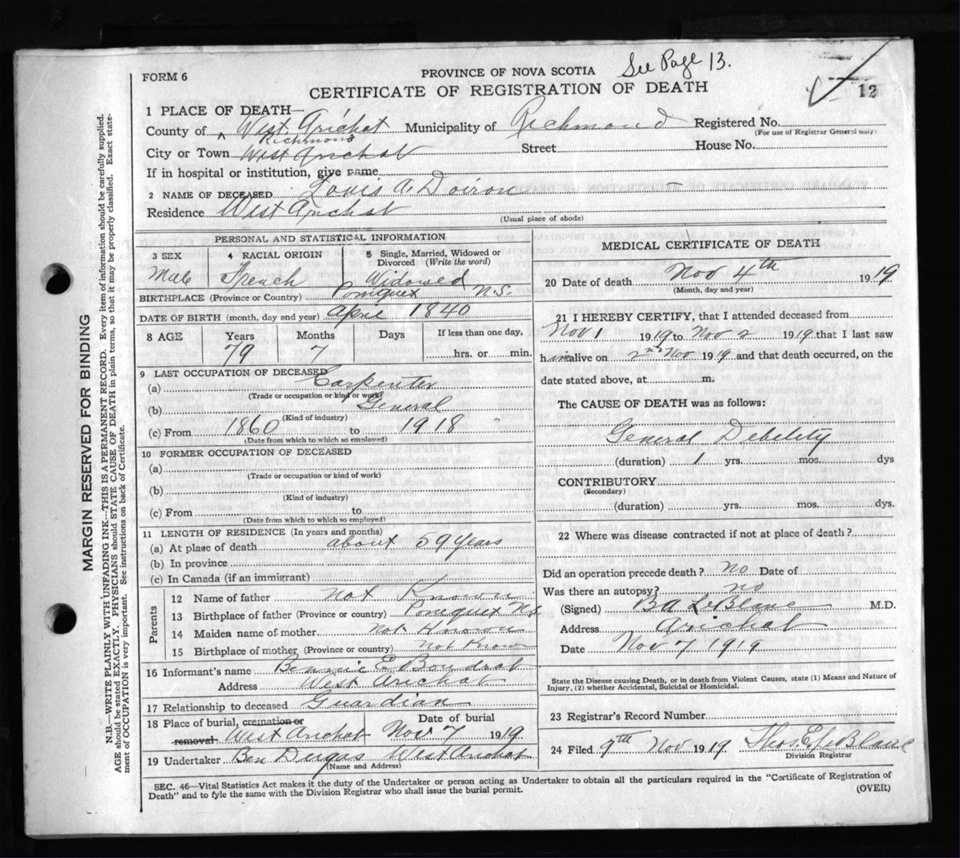 See Page 13.
12
FORM 6
PROVINCE OF NOVA SCOTIA
CERTIFICATE OF REGISTRATION OF DEATH
1 PLACE OF DEATH—
County of West Arichat Municipality of Richmond Registered No.
Richmond
(For use of Registrar General only)
City or Town West Arichat Street House No.
If in hospital or institution, give name
2 NAME OF DECEASED Louis A Doiron
Residence West Arichat
(Usual place of abode)
PERSONAL AND STATISTICAL INFORMATION
3 SEX 4 RACIAL ORIGIN 5 Single, Married, Widowed or Divorced (Write the word)
Male French Widowed
BIRTHPLACE (Province or Country) Pomquet N.S.
DATE OF BIRTH (month, day and year) April 1840
8 AGE Years Months Days If less than one day,
79 7 hrs. or min.
9 LAST OCCUPATION OF DECEASED
(a) Carpenter
(Trade or occupation or kind or work)
(b) General
(Kind of industry)
(c) From 1860 to 1918
(Date from which so employed)
10 FORMER OCCUPATION OF DECEASED
(a)
(Trade or occupation or kind of work)
(b)
(Kind of industry)
(c) From to
(Date from which so employed)
11 LENGTH OF RESIDENCE (In years and months)
(a) At place of death about 59 Years
(b) In province
(c) In Canada (if an immigrant)
Parents
12 Name of father Not Known
13 Birthplace of father (Province or country) Pomquet N.S.
14 Maiden name of mother Not Known
15 Birthplace of mother (Province or country) Not Know
16 Informant's name Bennie E Boudrot
Address West Arichat
17 Relationship to deceased Guardian
18 Place of burial, cremation or removal Date of burial
West Arichat Nov 7 1919
19 Undertaker Ben Dugas West Arichat
(Name and Address)
MEDICAL CERTIFICATE OF DEATH
20 Date of death Nov 4th 1919
(Month, day and year)
21 I HEREBY CERTIFY, that I attended deceased from
Nov 1 1919 to Nov 2 1919 that I last saw
him alive on 2nd Nov 1919 and that death occurred, on the
date stated above, at m.
The CAUSE OF DEATH was as follows:
General Debility
(duration) 1 yrs. mos. dys
CONTRIBUTORY
(Secondary)
(duration) yrs. mos. dys.
22 Where was disease contracted if not at place of death?
Did an operation precede death? no Date of
Was there an autopsy? no
(Signed) B A LeBlanc M.D.
Address Arichat
Date Nov 7 1919
State the Disease causing Death, or in death from Violent Causes, state (1) Means and Nature of
Injury, (2) whether Accidental, Suicidal or Homicidal.
23 Registrar's Record Number
24 Filed 9th Nov 1919 Thos E LeBlanc
Division Registrar
SEC. 46—Vital Statistics Act makes it the duty of the Undertaker or person acting as Undertaker to obtain all the particulars required in the "Certificate of Registration of
Death" and to fyle the same with the Division Registrar who shall issue the burial permit.
(OVER)
MARGIN RESERVED FOR BINDING
N.B.—WRITE PLAINLY WITH UNFADING INK—THIS IS A PERMANENT RECORD. Every item of information should be carefully supplied.
AGE should be stated EXACTLY. PHYSICIANS should STATE CAUSE OF DEATH in plain terms, so that it may be properly classified. Exact state-
ment of OCCUPATION is very important. See instructions on back of Certificate.